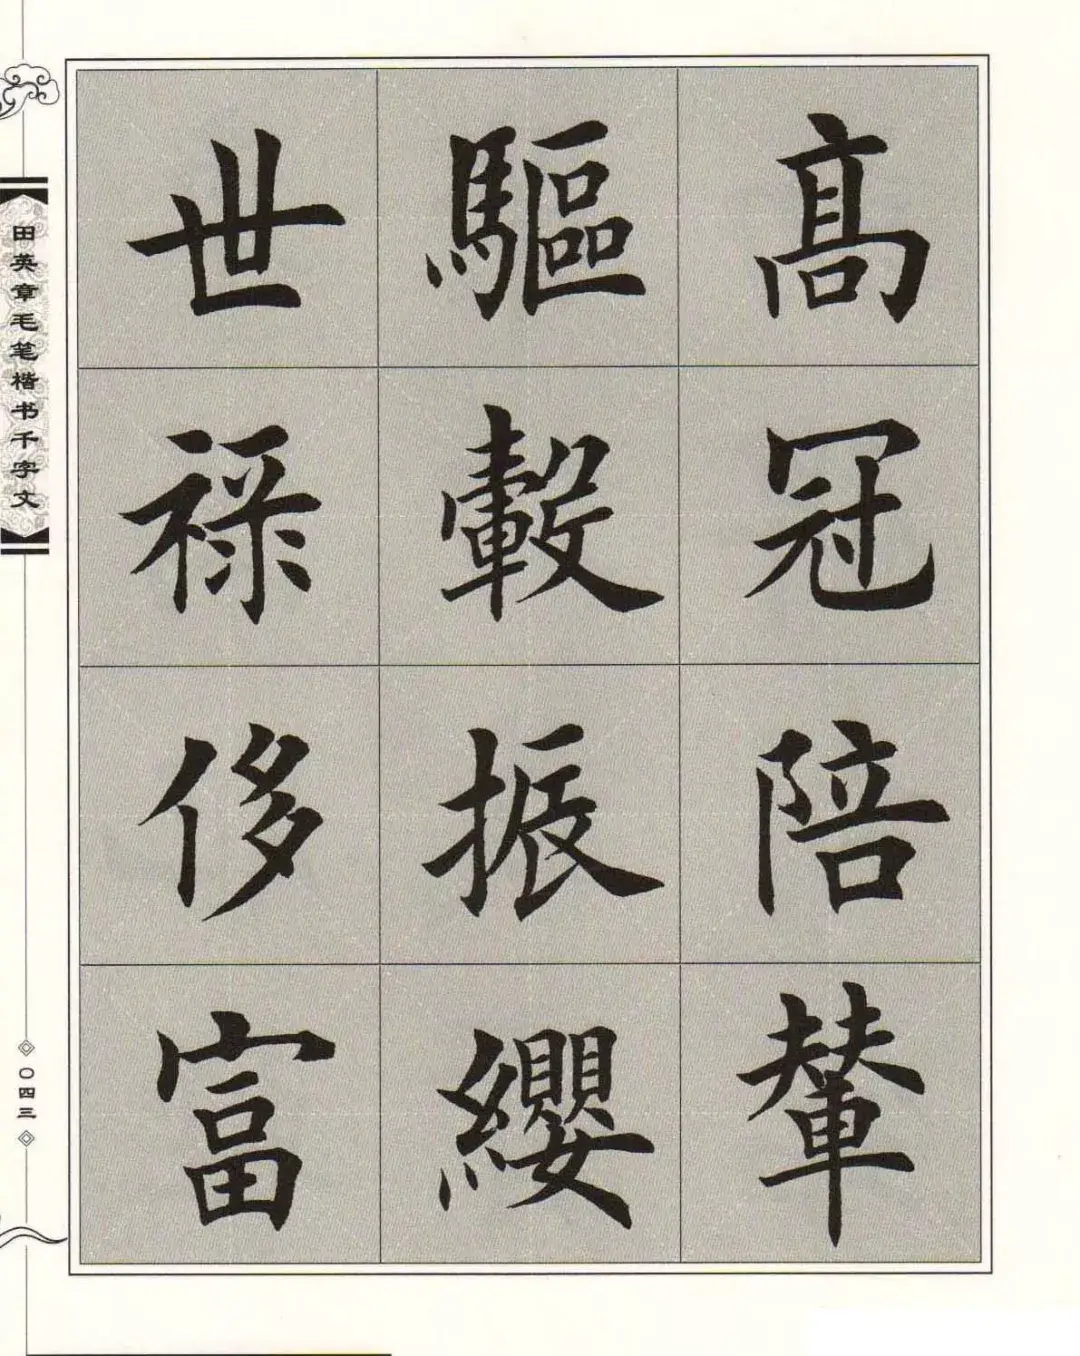 高冠陪輦
驅轂振纓
世祿侈富
田英章毛笔楷书千字文
〇四三